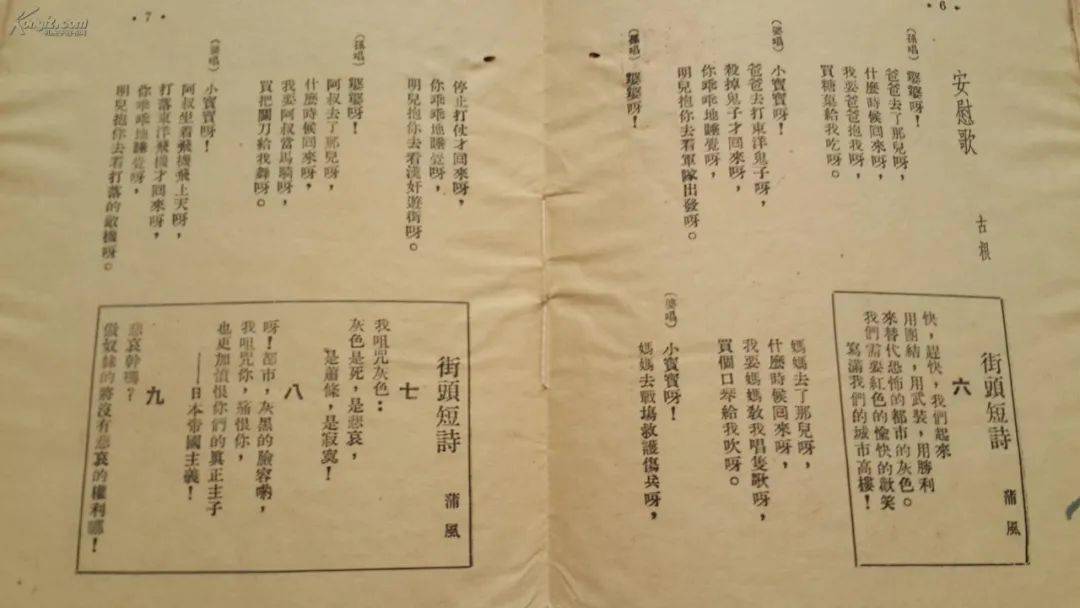 ·6·
安慰歌
古根
（孫唱）婆婆呀！
爸爸去了那兒呀，
什麼時候回來呀，
我要爸爸抱我呀，
買糖菓給我吃呀。
（婆唱）小寶寶呀！
爸爸去打東洋鬼子呀，
殺掉鬼子才回來呀，
你乖乖地睡覺呀，
明兒抱你去看軍隊出發呀。
（孫唱）婆婆呀！
媽媽去了那兒呀，
什麼時候回來呀，
我要媽媽教我唱隻歌呀，
買個口琴給我吹呀。
（婆唱）小寶寶呀！
媽媽去戰場救護傷兵呀，
街頭短詩
蒲風
六
快，趕快，我們起來
用團結，用武裝，用勝利
來替代恐怖的都市的灰色。
我們需要紅色的愉快的歡笑
寫滿我們的城市高樓！
·7·
停止打仗才回來呀，
你乖乖地睡覺呀，
明兒抱你去看漢奸遊街呀。
（孫唱）婆婆呀！
阿叔去了那兒呀，
什麼時候回來呀，
我要阿叔當馬騎呀，
買把關刀給我舞呀。
（婆唱）小寶寶呀！
阿叔坐着飛機飛上天呀，
打落東洋飛機才回來呀，
你乖乖地睡覺呀，
明兒抱你去看打落的敵機呀。
街頭短詩
蒲風
七
我咀咒灰色：
灰色是死，是悲哀，
是蕭條，是寂寞！
八
呀！都市，灰黑的臉容喲，
我咀咒你，痛恨你，
也更加憤恨你們的眞正主子
——日本帝國主義！
九
悲哀幹嗎？
做奴隸的將沒有悲哀的權利哪！
Kongfz.com